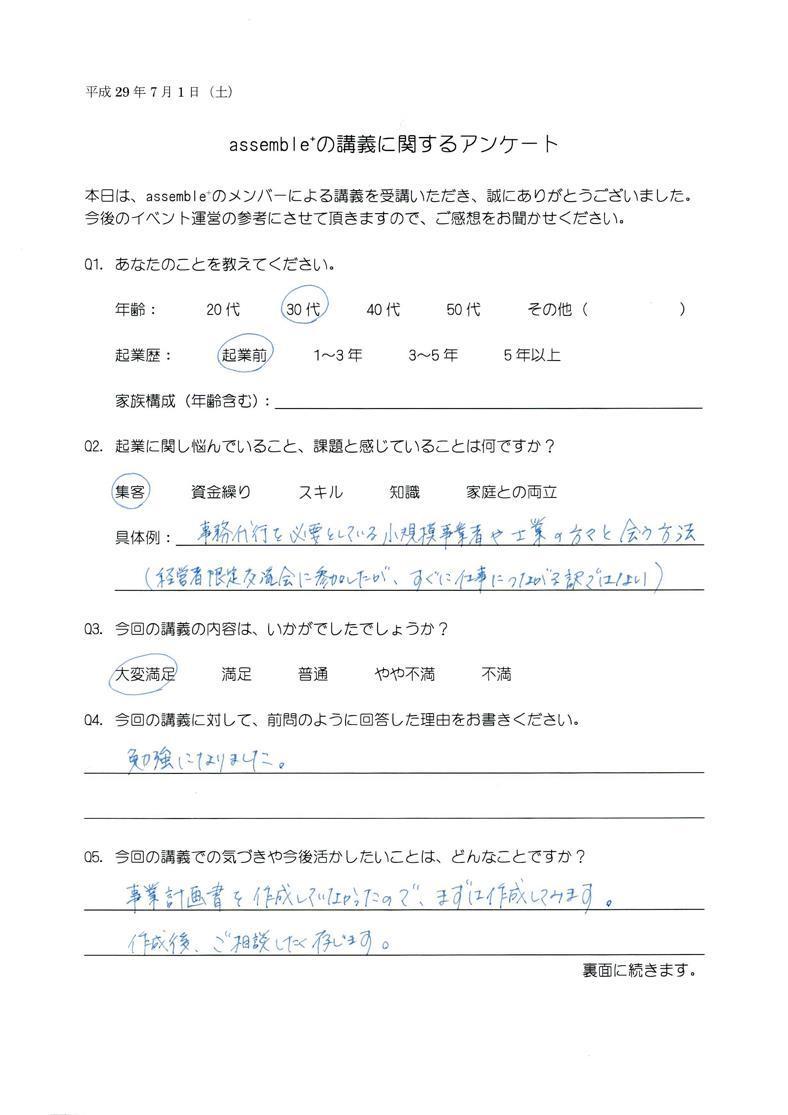 平成 29 年 7 月 1 日（土）
assemble⁺の講義に関するアンケート
本日は、assemble⁺のメンバーによる講義を受講いただき、誠にありがとうございました。
今後のイベント運営の参考にさせて頂きますので、ご感想をお聞かせください。
Q1. あなたのことを教えてください。
年齢： 20 代 30 代 40 代 50 代 その他（ ）
起業歴： 起業前 1～3 年 3～5 年 5 年以上
家族構成（年齢含む）：
Q2. 起業に関し悩んでいること、課題と感じていることは何ですか？
集客 資金繰り スキル 知識 家庭との両立
具体例： 事務代行を必要としている小規模事業者や士業の方々と会う方法
（経営者限定交流会に参加したが、すぐに仕事につながる訳ではない）
Q3. 今回の講義の内容は、いかがでしたでしょうか？
大変満足 満足 普通 やや不満 不満
Q4. 今回の講義に対して、前問のように回答した理由をお書きください。
勉強になりました。
Q5. 今回の講義での気づきや今後活かしたいことは、どんなことですか？
事業計画書を作成していなかったので、まずは作成してみます。
作成後、ご相談したく存じます。
裏面に続きます。